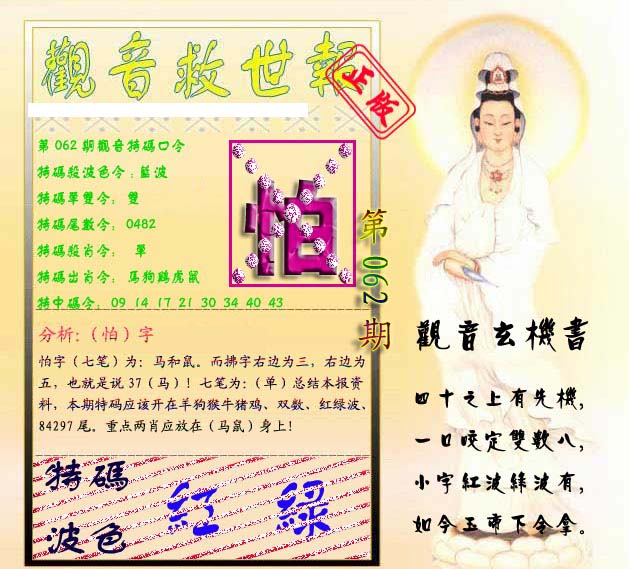 觀音救世報
正版
第 062 期觀音特碼口令
特碼殺波色令：藍波
特碼單雙令： 雙
特碼尾數令： 0482
特碼殺肖令： 單
特碼出肖令： 馬狗鷄虎鼠
特中碼令： 09 14 17 21 30 34 40 43
怕
第 062 期
分析:（怕）字
怕字（七笔）为：马和鼠。而拂字右边为三，右边为
五，也就是说 37（马）！七笔为：（单）总结本报资
料，本期特码应该开在羊狗猴牛猪鸡、双数、红绿波、
84297 尾。重点两肖应放在（马鼠）身上！
特碼
波色
红 绿
觀音玄機書
四十之上有先機，
一口咬定雙數八，
小字紅波綠波有，
如今玉帝下令拿。